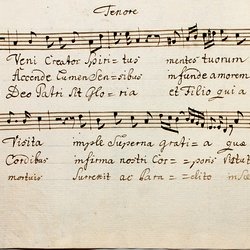 Tenore
Veni Creator Spiri=tus mentes tuorum
Accende Lumen Sen=sibus infunde amorem
Deo Patri sit Glo=ria et Filio qui a
Visita imple Superna grati=a quæ
Cordibus infirma nostri Cor==poris Virtut
mortuis Surrexit ac Para=clito in Sæ